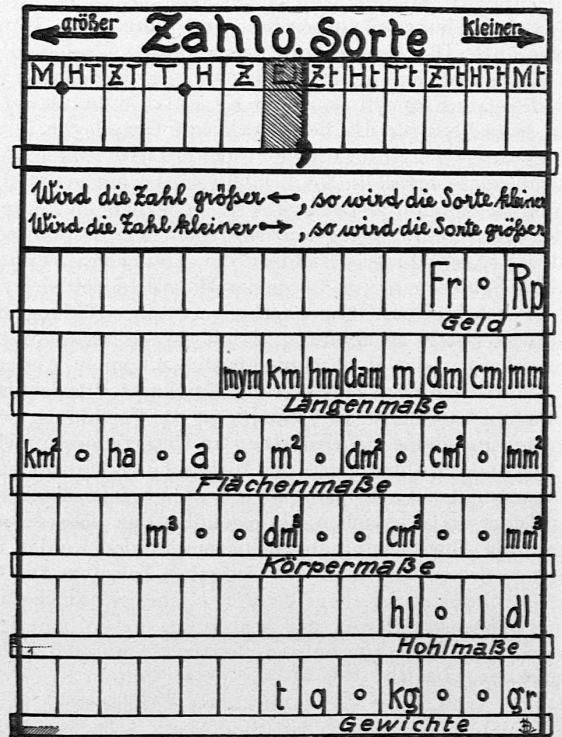 größer Zahl u. Sorte kleiner
M HT ZT T H Z E Zt Ht Tt ZTt HTt Mt
,
Wird die Zahl größer ↔, so wird die Sorte kleiner
Wird die Zahl kleiner ↔, so wird die Sorte größer
Fr o Rp
Geld
mym km hm dam m dm cm mm
Längenmaße
km² o ha o a o m² o dm² o cm² o mm²
Flächenmaße
m³ o o dm³ o o cm³ o o mm³
Körpermaße
hl o l dl
Hohlmaße
t q o kg o o gr
Gewichte